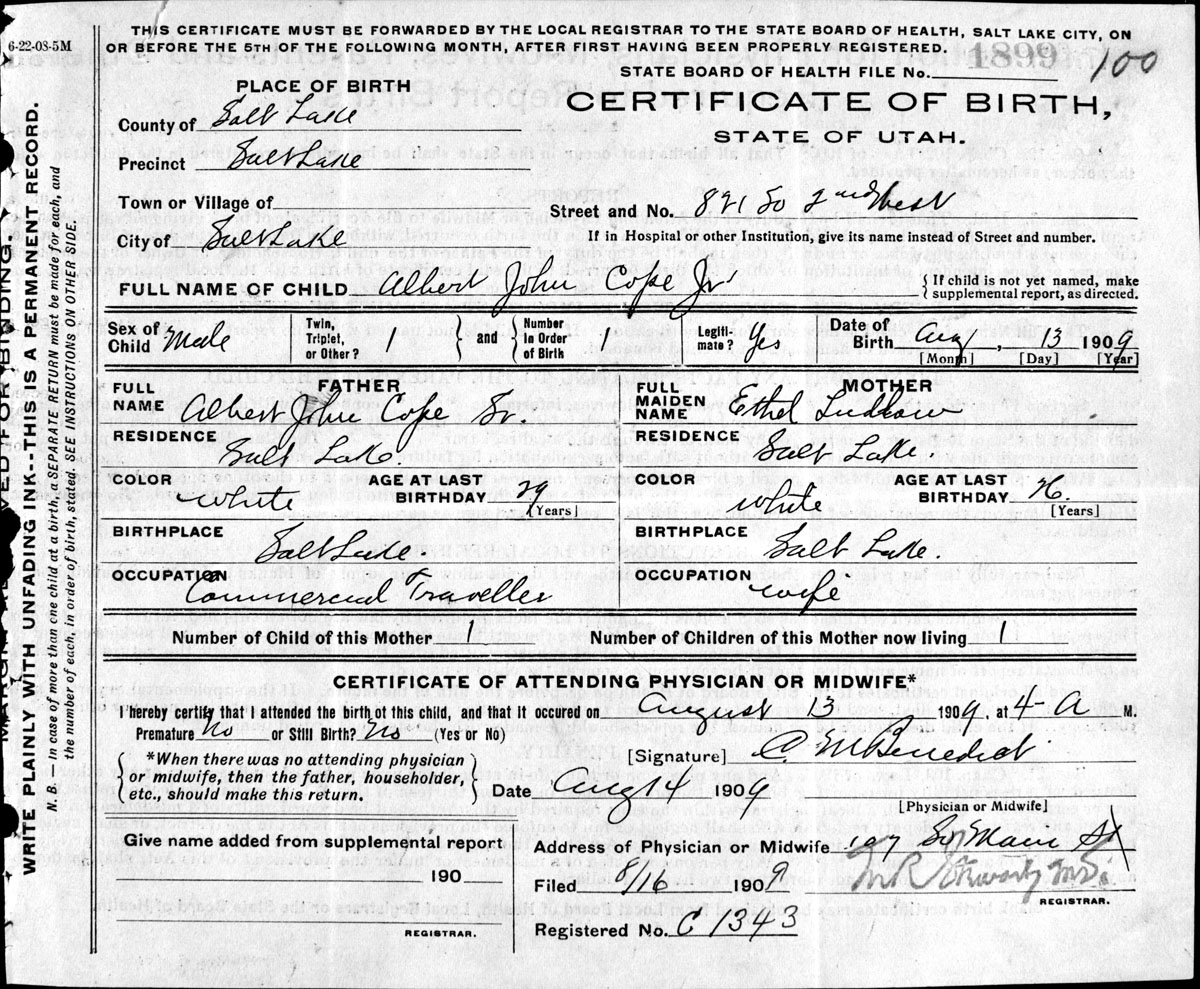 THIS CERTIFICATE MUST BE FORWARDED BY THE LOCAL REGISTRAR TO THE STATE BOARD OF HEALTH, SALT LAKE CITY, ON
6-22-08-5M
OR BEFORE THE 5TH OF THE FOLLOWING MONTH, AFTER FIRST HAVING BEEN PROPERLY REGISTERED.
1899 100
STATE BOARD OF HEALTH FILE No.
PLACE OF BIRTH
CERTIFICATE OF BIRTH,
STATE OF UTAH.
County of Salt Lake
Precinct Salt Lake
Town or Village of
Street and No. 821 So 2nd West
City of Salt Lake
If in Hospital or other Institution, give its name instead of Street and number.
FULL NAME OF CHILD Albert John Cope Jr
{ If child is not yet named, make supplemental report, as directed.
Sex of Child Male
Twin, Triplet, or Other? 1 } and { Number in Order of Birth 1
Legiti-mate? Yes
Date of Birth Aug, 13 1909
[Month] [Day] [Year]
FATHER
FULL NAME Albert John Cope Sr.
RESIDENCE Salt Lake.
COLOR white
AGE AT LAST BIRTHDAY 29 [Years]
BIRTHPLACE Salt Lake
OCCUPATION Commercial Traveller
MOTHER
FULL MAIDEN NAME Ethel Ludlow
RESIDENCE Salt Lake.
COLOR white
AGE AT LAST BIRTHDAY 26. [Years]
BIRTHPLACE Salt Lake.
OCCUPATION wife
Number of Child of this Mother 1 Number of Children of this Mother now living 1
CERTIFICATE OF ATTENDING PHYSICIAN OR MIDWIFE*
I hereby certify that I attended the birth of this child, and that it occured on August 13 1909, at 4-A M.
Premature No or Still Birth? No (Yes or No)
[Signature] C. M Benedict
{ *When there was no attending physician
or midwife, then the father, householder,
etc., should make this return. }
Date Aug 14 1909
[Physician or Midwife]
Give name added from supplemental report
190
REGISTRAR.
Address of Physician or Midwife So Main St
Filed 8/16 1909
REGISTRAR.
Registered No. C 1343
WRITE PLAINLY WITH UNFADING INK--THIS IS A PERMANENT RECORD.
N. B.—In case of more than one child at a birth, a SEPARATE RETURN must be made for each, and
the number of each, in order of birth, stated. SEE INSTRUCTIONS ON OTHER SIDE.